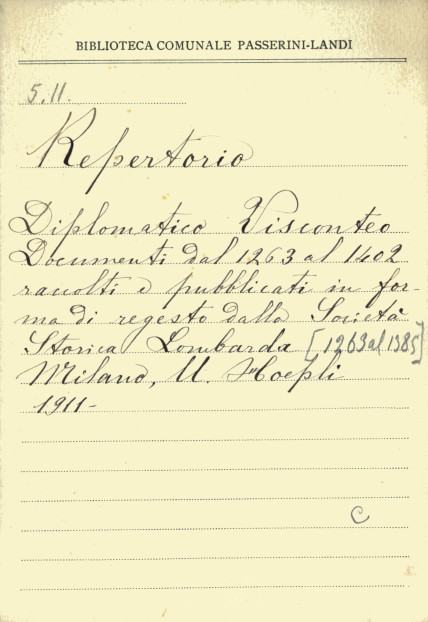 BIBLIOTECA COMUNALE PASSERINI-LANDI
5.11.
Repertorio
Diplomatico Visconteo
Documenti dal 1263 al 1402
raccolti e pubblicati in for-
ma di regesto dalla Società
Storica Lombarda [1263 al 1385]
Milano, U. Hoepli
1911-
C